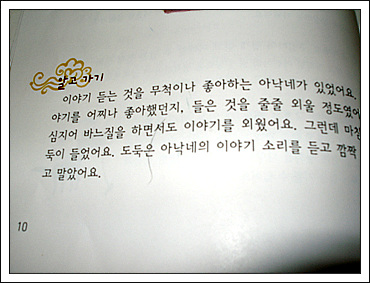 알고 가기
이야기 듣는 것을 무척이나 좋아하는 아낙네가 있었어요.
야기를 어찌나 좋아했던지, 들은 것을 줄줄 외울 정도였어
심지어 바느질을 하면서도 이야기를 외웠어요. 그런데 마침
둑이 들었어요. 도둑은 아낙네의 이야기 소리를 듣고 깜짝
고 말았어요.
10